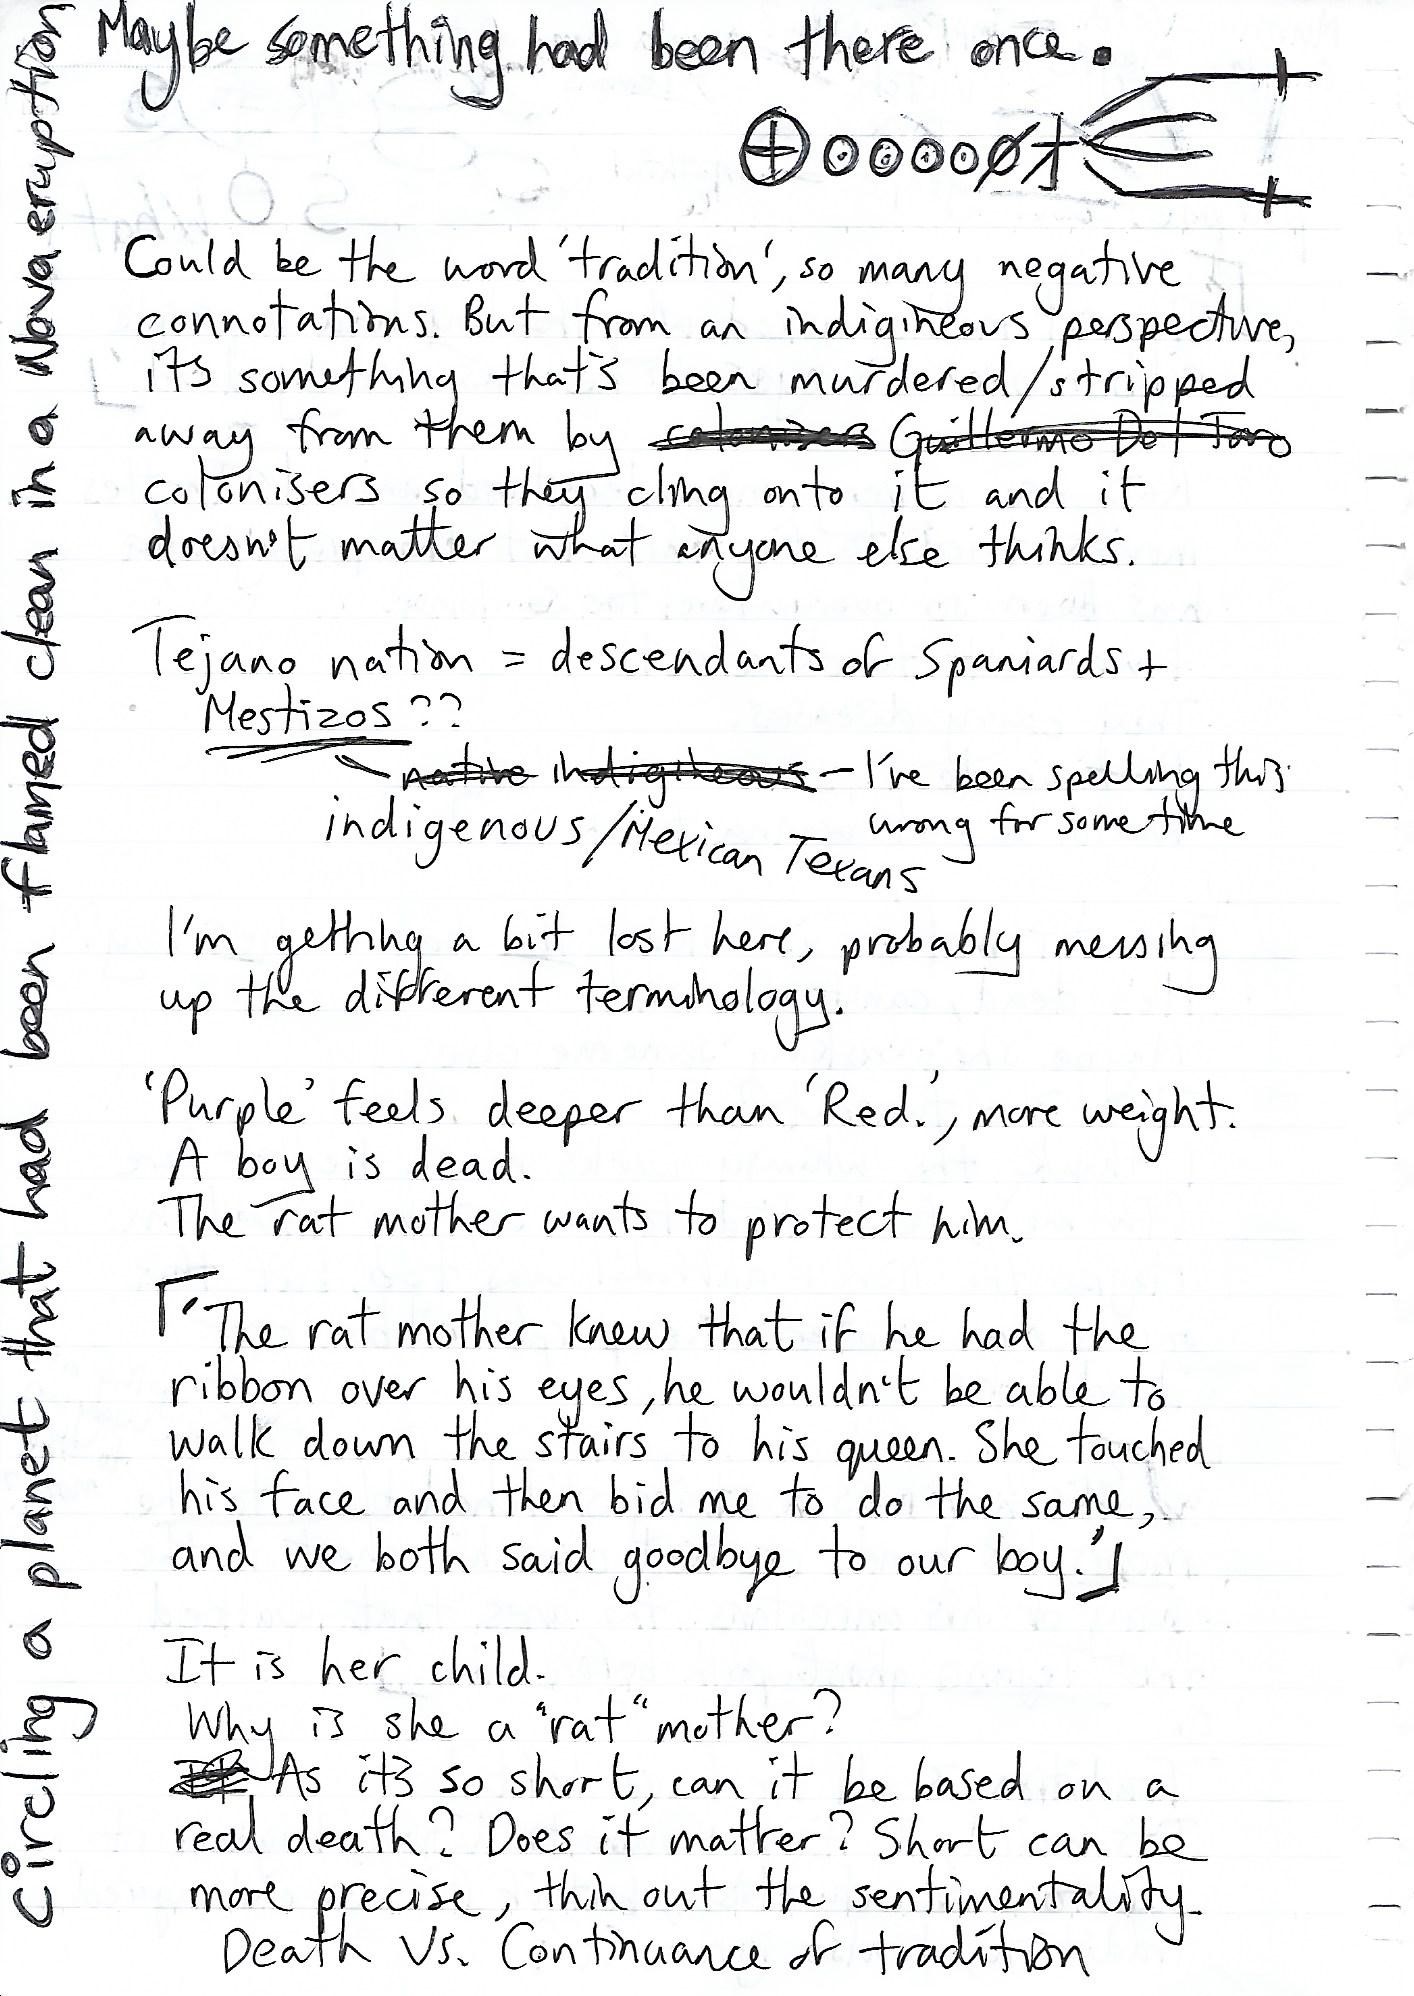 Circling a planet that had been flamed clean in a Nova eruption
Maybe something had been there once.
Could be the word 'tradition', so many negative
connotations. But from an indigineous perspective,
its something that's been murdered/stripped
away from them by colonisers Guillermo Del Toro
colonisers so they cling onto it and it
doesn't matter what anyone else thinks.
Tejano nation = descendants of Spaniards +
Mestizos ??
native indigineous – I've been spelling this
indigenous/Mexican Texans wrong for some time
I'm getting a bit lost here, probably messing
up the different terminology.
'Purple' feels deeper than 'Red.', more weight.
A boy is dead.
The rat mother wants to protect him.
「'The rat mother knew that if he had the
ribbon over his eyes, he wouldn't be able to
walk down the stairs to his queen. She touched
his face and then bid me to do the same,
and we both said goodbye to our boy.'」
It is her child.
Why is she a "rat" mother?
As its so short, can it be based on a
real death? Does it matter? Short can be
more precise, thin out the sentimentality.
Death Vs. Continuance of tradition